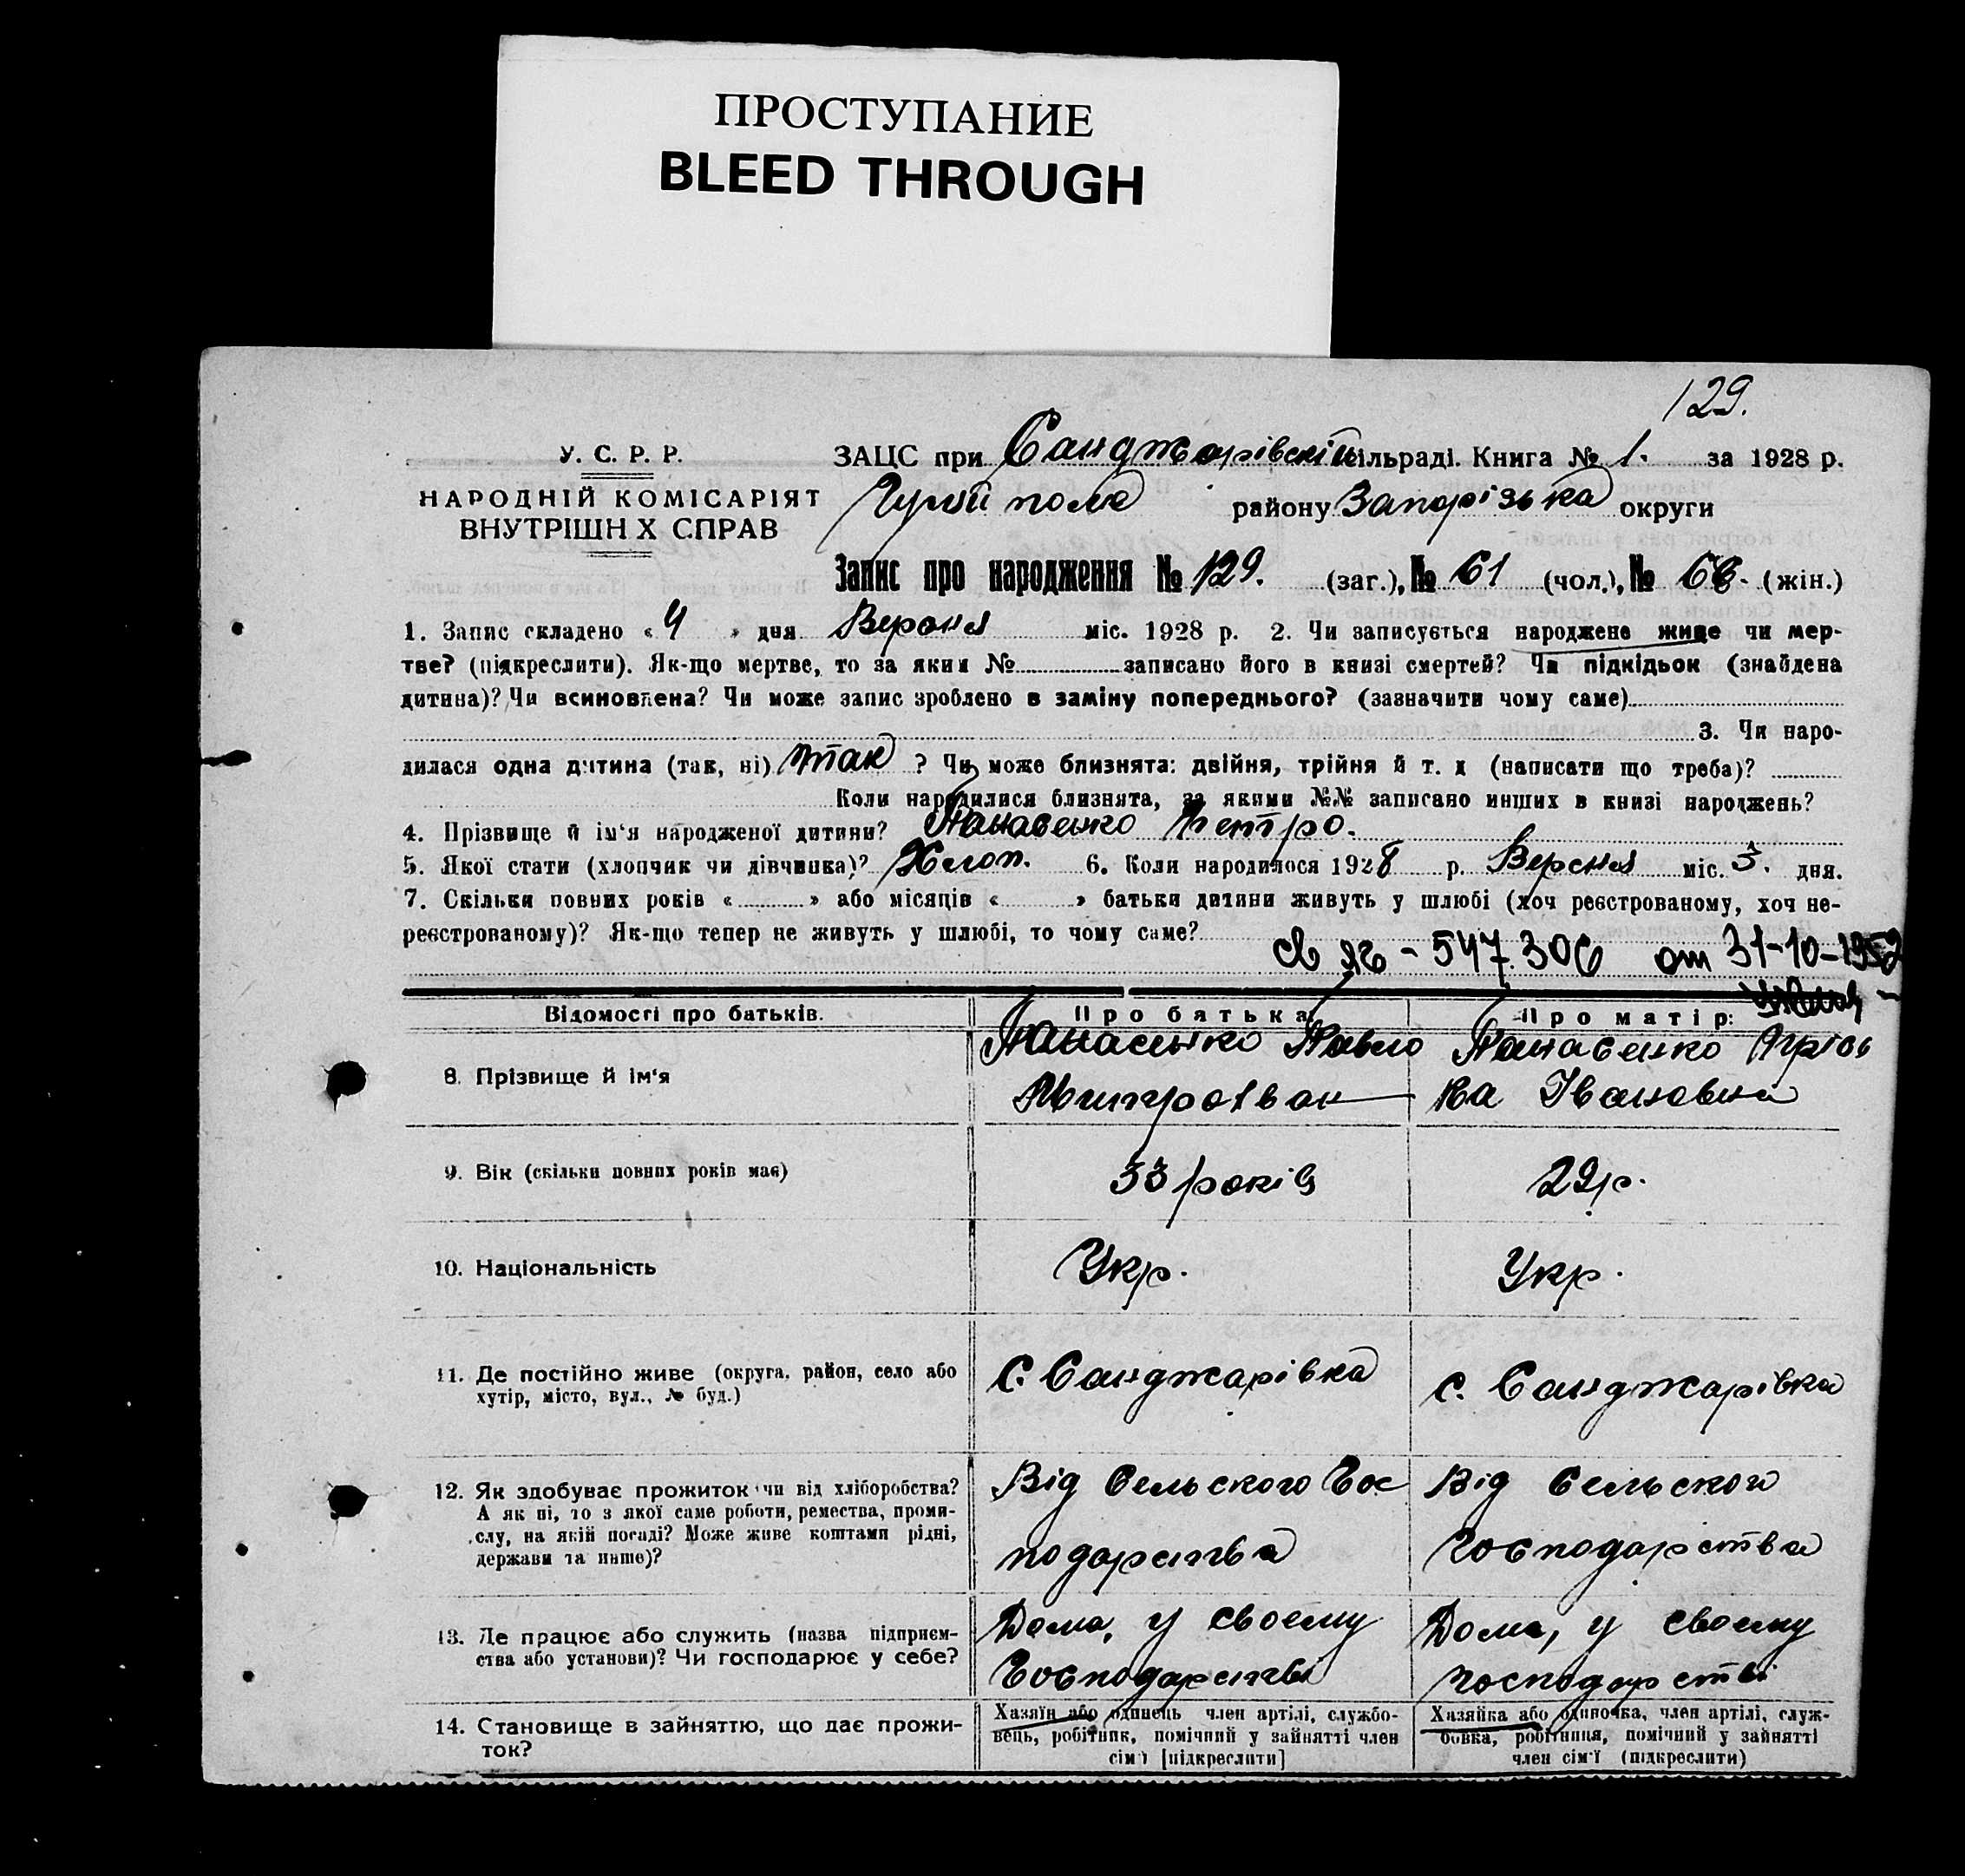 ПРОСТУПАНИЕ
BLEED THROUGH
129.
У. С. Р. Р.
НАРОДНІЙ КОМІСАРІЯТ
ВНУТРІШН Х СПРАВ
ЗАЦС при Санджарівскій сільраді. Книга № 1. за 1928 р.
району Запорізька округи
Запис про народження № 129. (заг.), № 61 (чол.), № 68. (жін.)
1. Запис складено « 4 » дня Вересня міс. 1928 р. 2. Чи записується народжене живе чи мер-
тве? (підкреслити). Як-що мертве, то за яким № записано його в книзі смертей? Чи підкідьок (знайдена
дитина)? Чи всиновлена? Чи може запис зроблено в заміну попереднього? (зазначити чому саме)
3. Чи наро-
дилася одна дитина (так, ні) так ? Чи може близнята: двійня, трійня й т. д (написати що треба)?
Коли народилися близнята, за якими №№ записано инших в книзі народжень?
4. Прізвище й ім‘я народженої дитини? Панасенко Петро.
5. Якої стати (хлопчик чи дівчинка)? Хлоп. 6. Коли народилося 1928 р. Вересня міс. 3. дня.
7. Скільки повних років « » або місяців « » батьки дитини живуть у шлюбі (хоч реєстрованому, хоч не-
реєстрованому)? Як-що тепер не живуть у шлюбі, то чому саме?
547.306 от 31-10-1952
Відомості про батьків. Про батька: Про матір:
8. Прізвище й ім‘я
Панасенко Павло
Митрофан
Панасенко Прісь
ка Івановна
9. Вік (скільки повних років має) 33 років 29 р.
10. Національність Укр. Укр.
11. Де постійно живе (округа, район, село або
хутір, місто, вул., № буд.)
С. Санджарівка
с. Санджарівка
12. Як здобуває прожиток чи від хліборобства?
А як ні, то з якої саме роботи, ремества, проми-
слу, на якій посаді? Може живе коштами рідні,
держави та инше)?
Від Сельского Гос
подарства
Від Сельского
господарства
13. Де працює або служить (назва підприєм-
ства або установи)? Чи господарює у себе?
Дома, у своему
Господарстві
Дома, у своему
господарстві
14. Становище в зайняттю, що дає прожи-
ток?
Хазяїн або одинець член артілі, службо-
вець, робітник, помічний у зайнятті член
сім'ї [підкреслити]
Хазяйка або одиночка, член артілі, служ-
бовка, робітниця, помічний у зайнятті
член сім'ї (підкреслити)